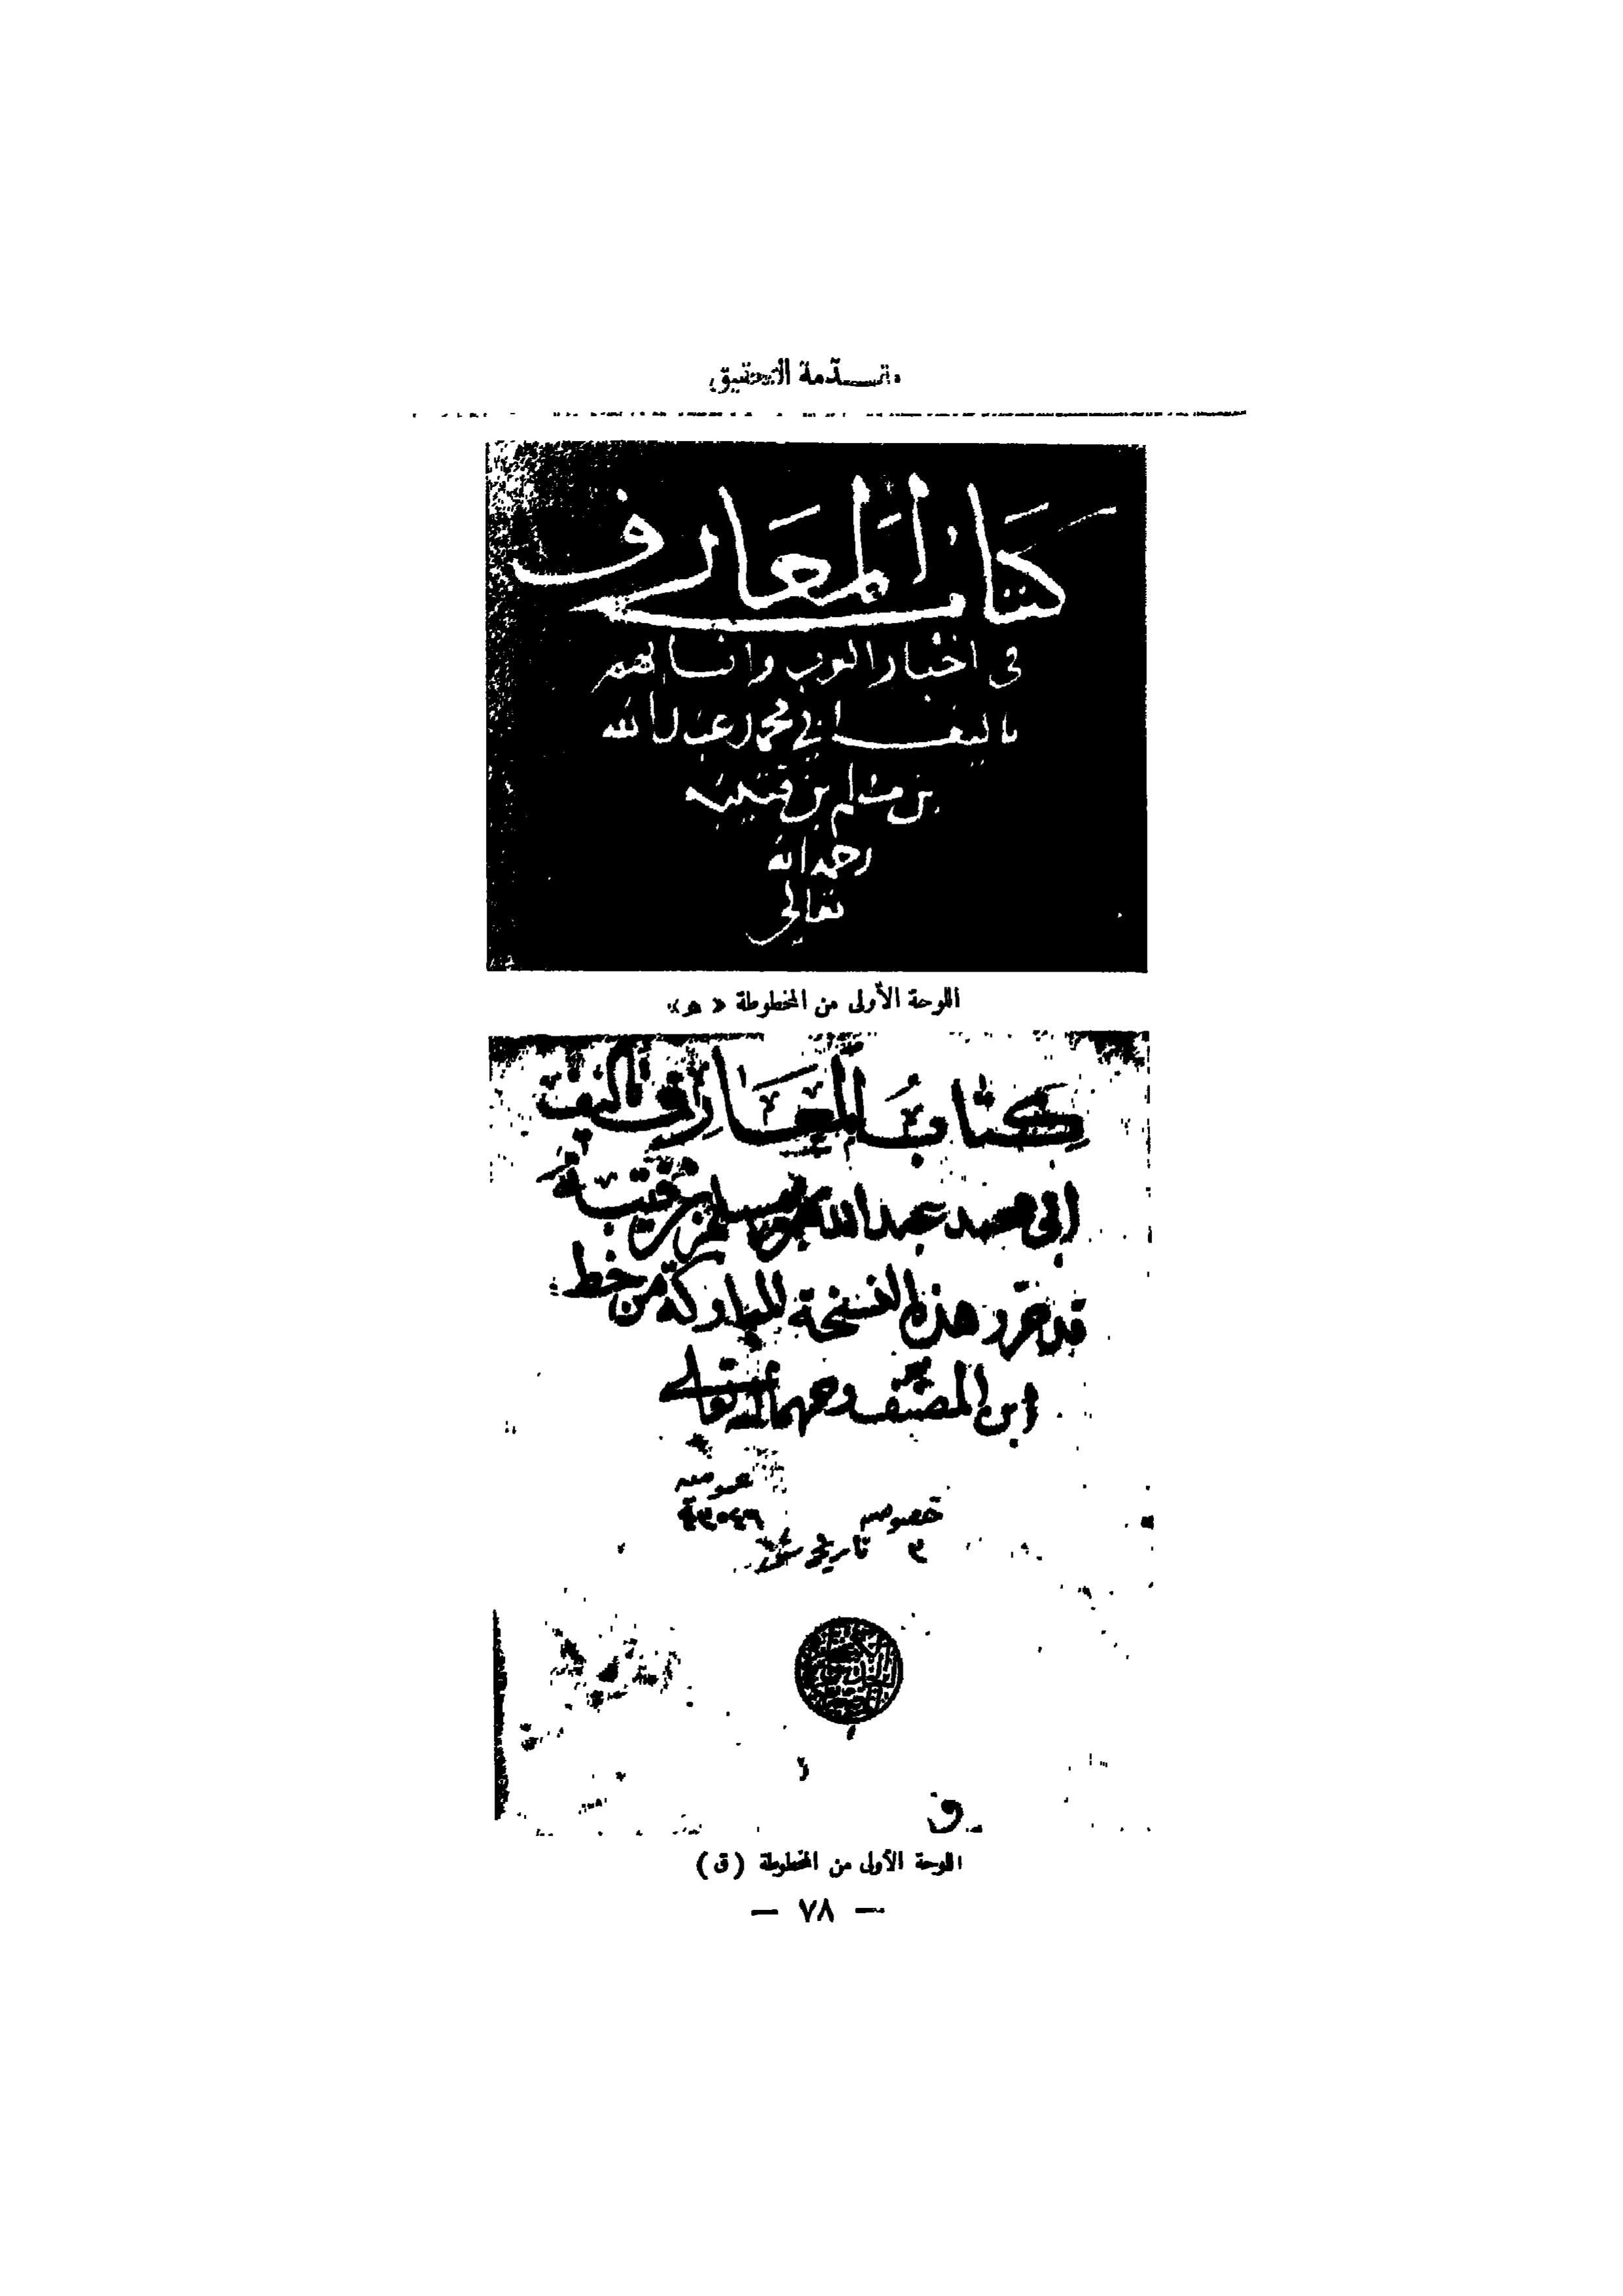 مقـــدّمة التحقيق
كتاب المعارف
فى اخبار العرب وانسابهم
تاليف ابي محمد عبد الله
بن مسلم بن قتيبه
رحمه الله
تعالى
اللوحة الأولى من المخطوطة « هو»
كتاب المعارف تأليف
ابى محمد عبد الله بن مسلم بن قتيبة
قد حرر هذه النسخة المباركة من خط
ابن المصنف رحمهما الله تعالى
عموميه
خصوصيه ٤٣٠٤٦
٣ تاريخ
ق
اللوحة الأولى من المخطوطة (ق)
— ٧٨ —